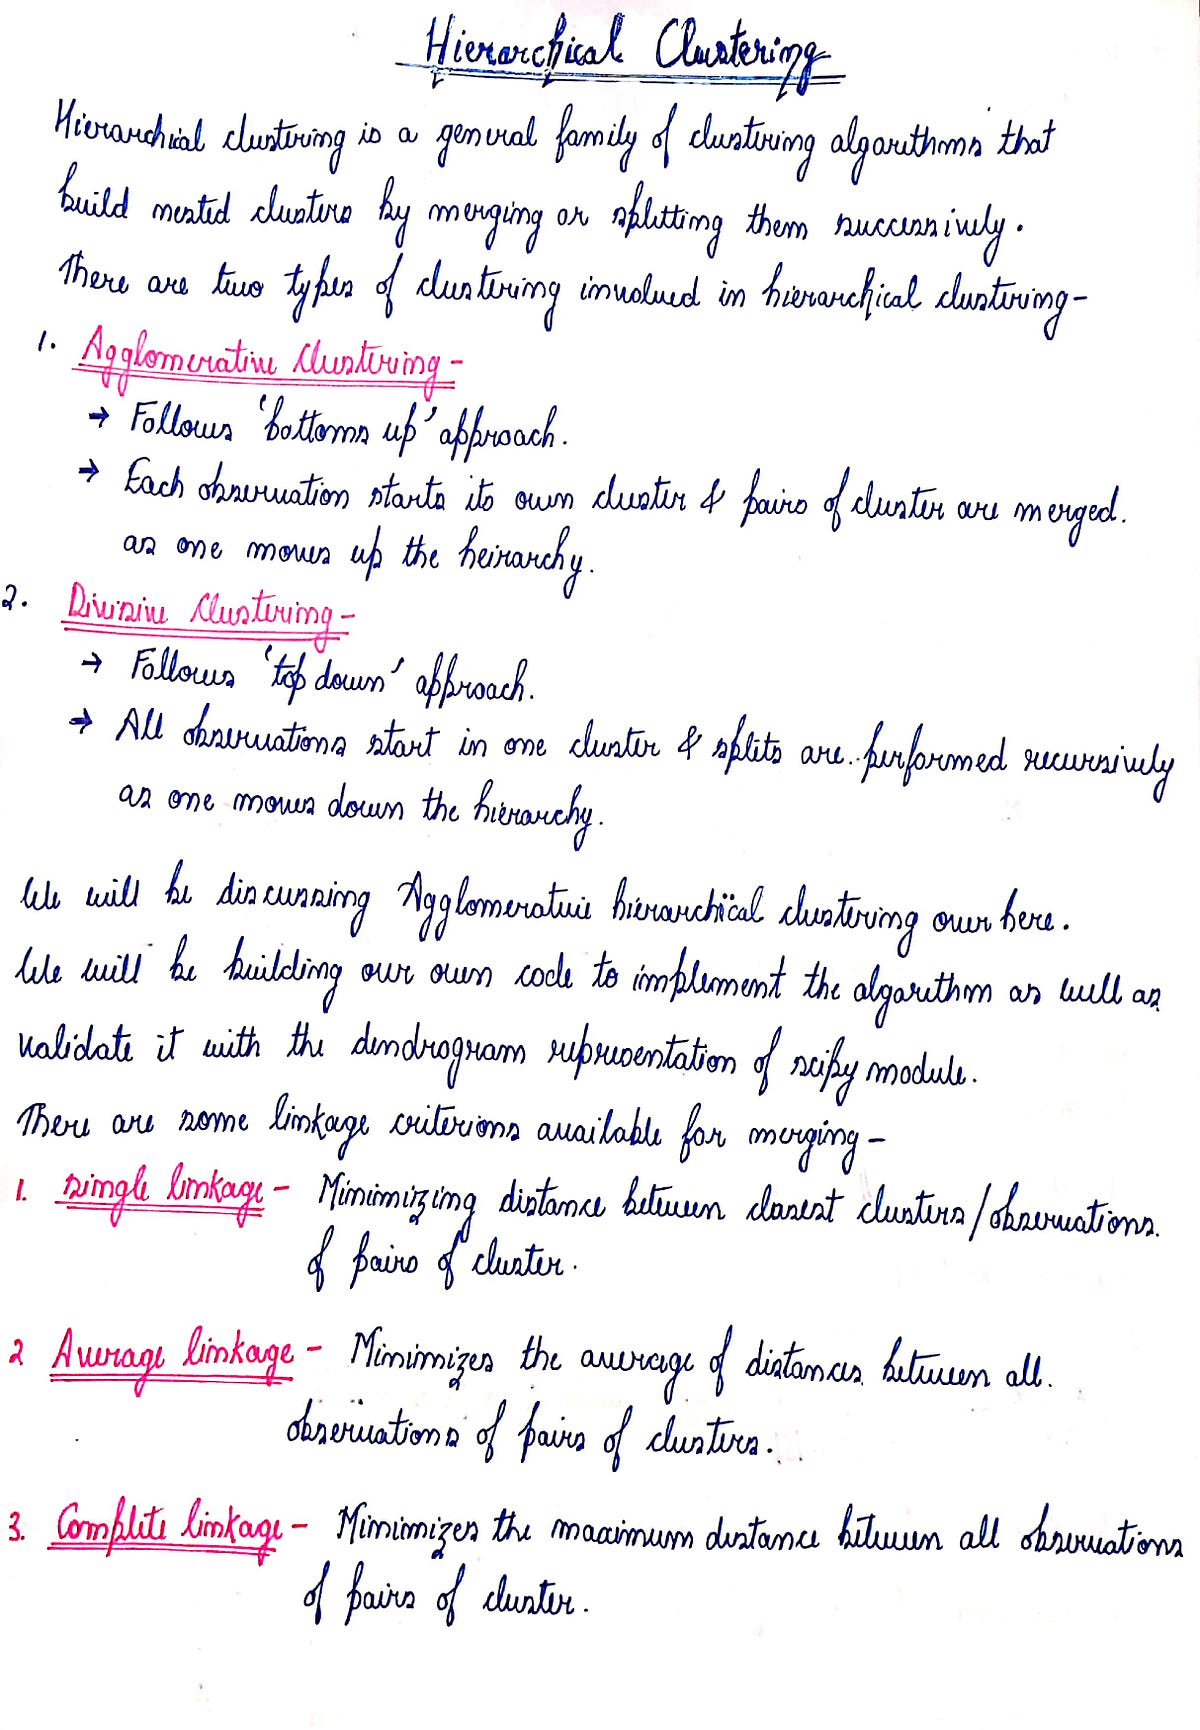 Hierarchical Clustering
Hierarchical clustering is a general family of clustering algorithms that
build nested clusters by merging or splitting them successively.
There are two types of clustering involved in hierarchical clustering-
1. Agglomerative Clustering-
→ Follows 'bottoms up' approach.
→ Each observation starts its own cluster & pairs of cluster are merged.
as one moves up the heirarchy.
2. Divisive Clustering-
→ Follows 'top down' approach.
→ All observations start in one cluster & splits are performed recursively
as one moves down the hierarchy.
We will be discussing Agglomerative hierarchical clustering over here.
We will be building our own code to implement the algorithm as well as
validate it with the dendrogram representation of scipy module.
There are some linkage criterions available for merging-
1. single linkage - Minimizing distance between closest clusters/observations.
of pairs of cluster.
2 Average linkage - Minimizes the average of distances between all.
observations of pairs of clusters.
3. Complete linkage - Minimizes the maximum distance between all observations
of pairs of cluster.